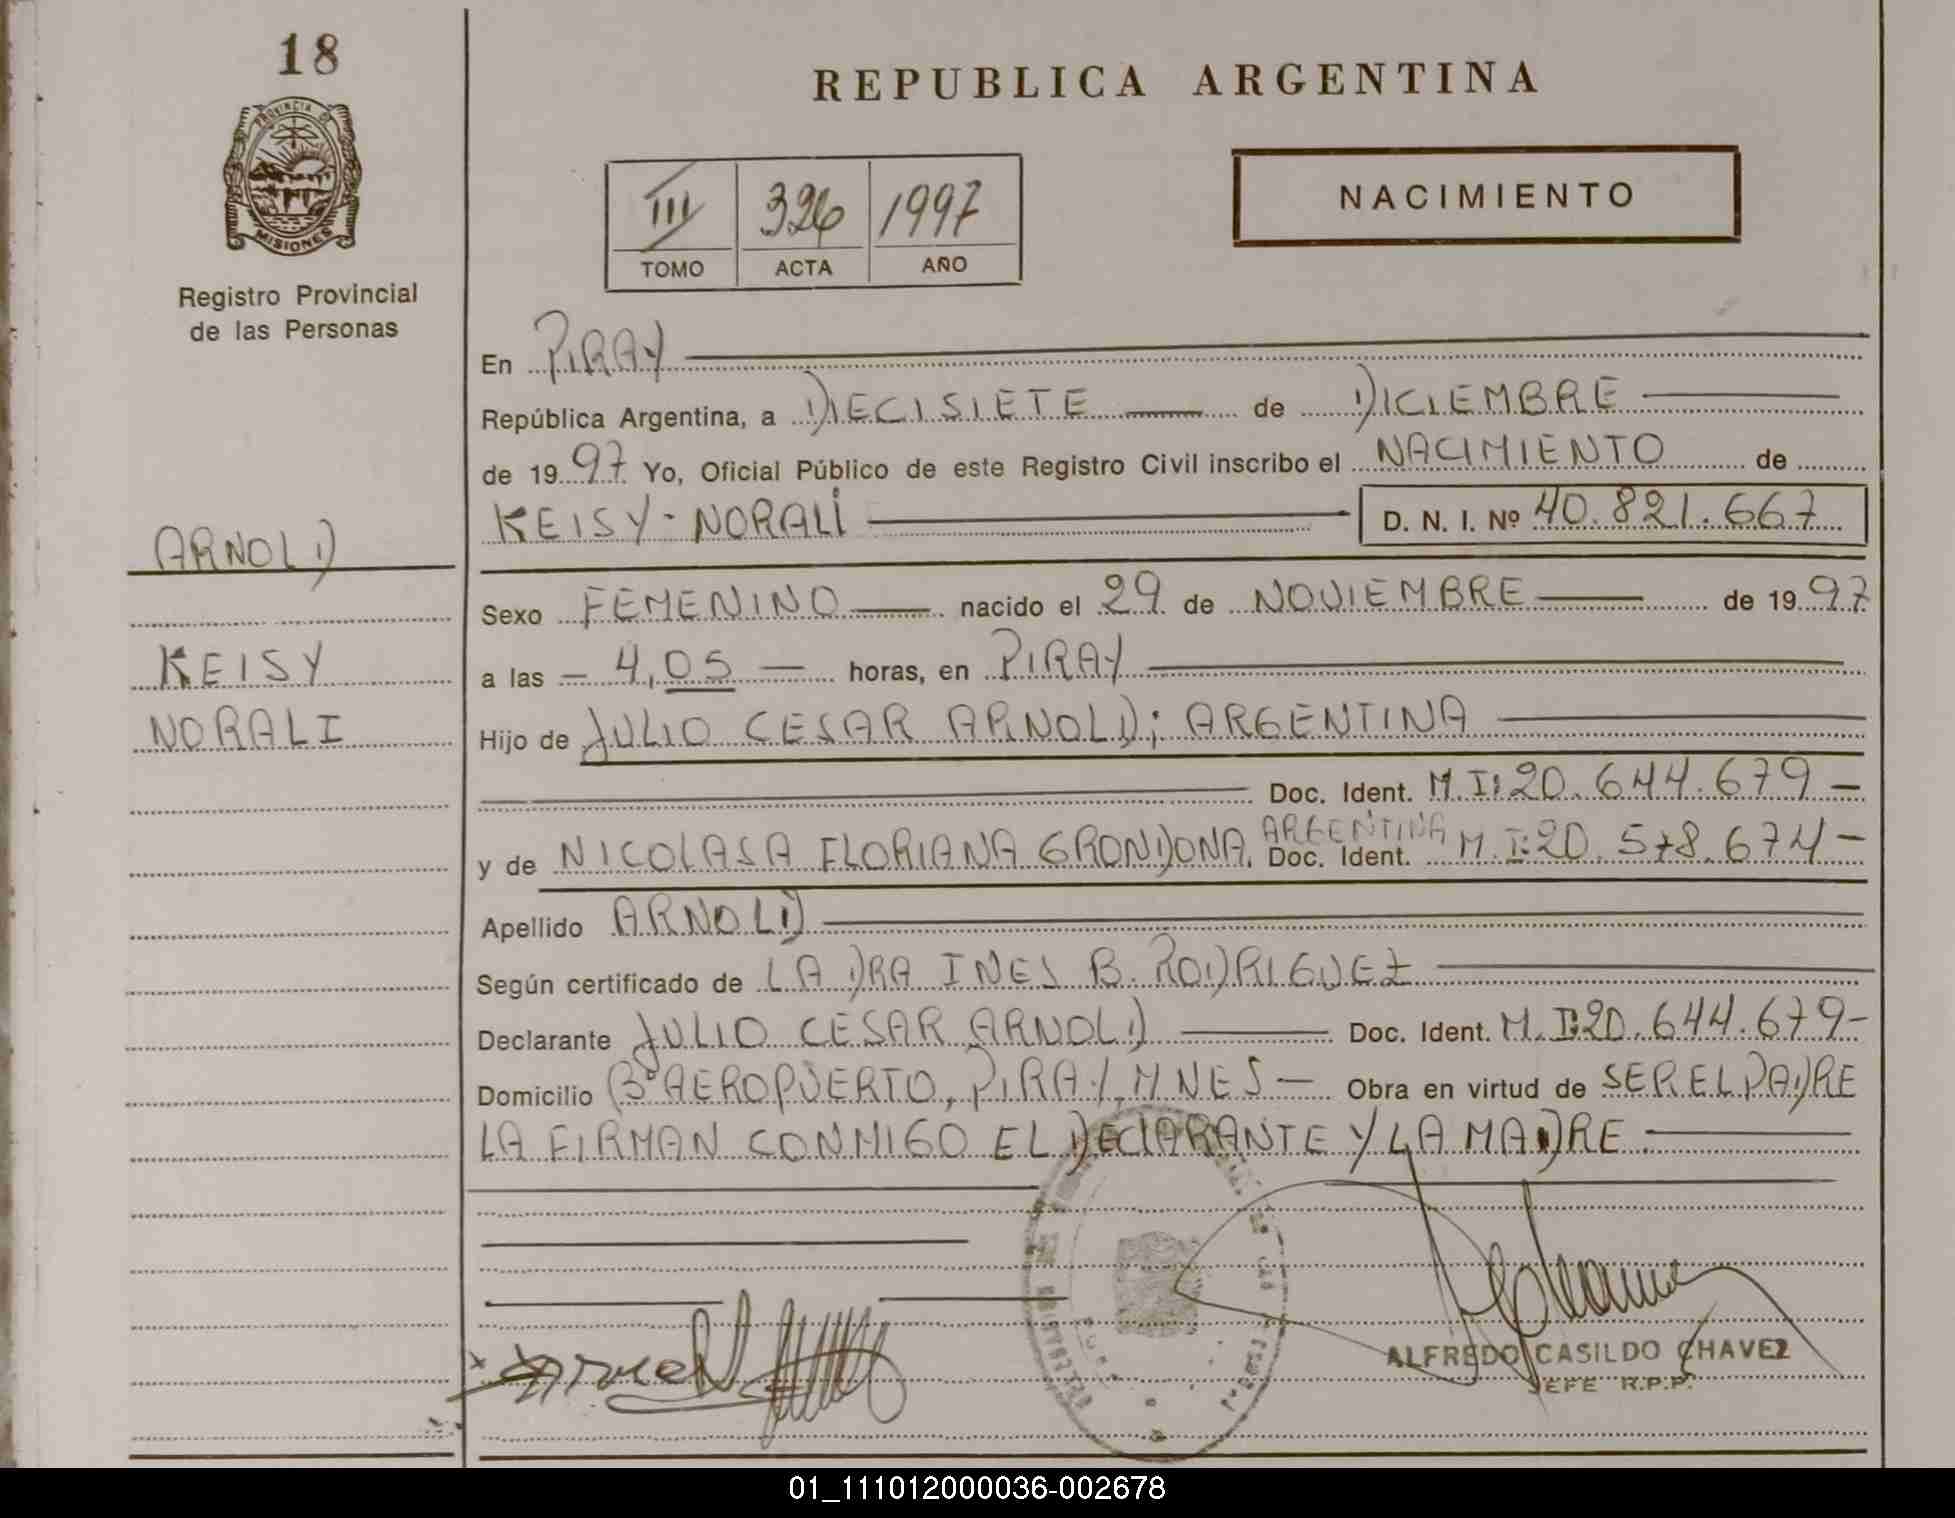 18
PROVINCIA DE
MISIONES
Registro Provincial
de las Personas
REPUBLICA ARGENTINA
III 326 1997
TOMO ACTA AÑO
NACIMIENTO
En PIRAY
República Argentina, a DIECISIETE de DICIEMBRE
de 1997 Yo, Oficial Público de este Registro Civil inscribo el NACIMIENTO de
KEISY - NORALI D. N. I. Nº 40.821.667
ARNOLD
KEISY
NORALI
Sexo FEMENINO nacido el 29 de NOVIEMBRE de 1997
a las 4,05 horas, en PIRAY
Hijo de JULIO CESAR ARNOLD; ARGENTINA
Doc. Ident. M.I:20.644.679
y de NICOLASA FLORIANA GRONDONA. ARGENTINA Doc. Ident. M.I:20.578.674
Apellido ARNOLD
Según certificado de LA DRA INES B. RODRIGUEZ
Declarante JULIO CESAR ARNOLD Doc. Ident. M.I:20.644.679
Domicilio Bº AEROPUERTO, PIRAY, MNES Obra en virtud de SER EL PADRE
LA FIRMAN CONMIGO EL DECLARANTE Y LA MADRE
ALFREDO CASILDO CHAVEZ
JEFE R.P.P.
01_111012000036-002678